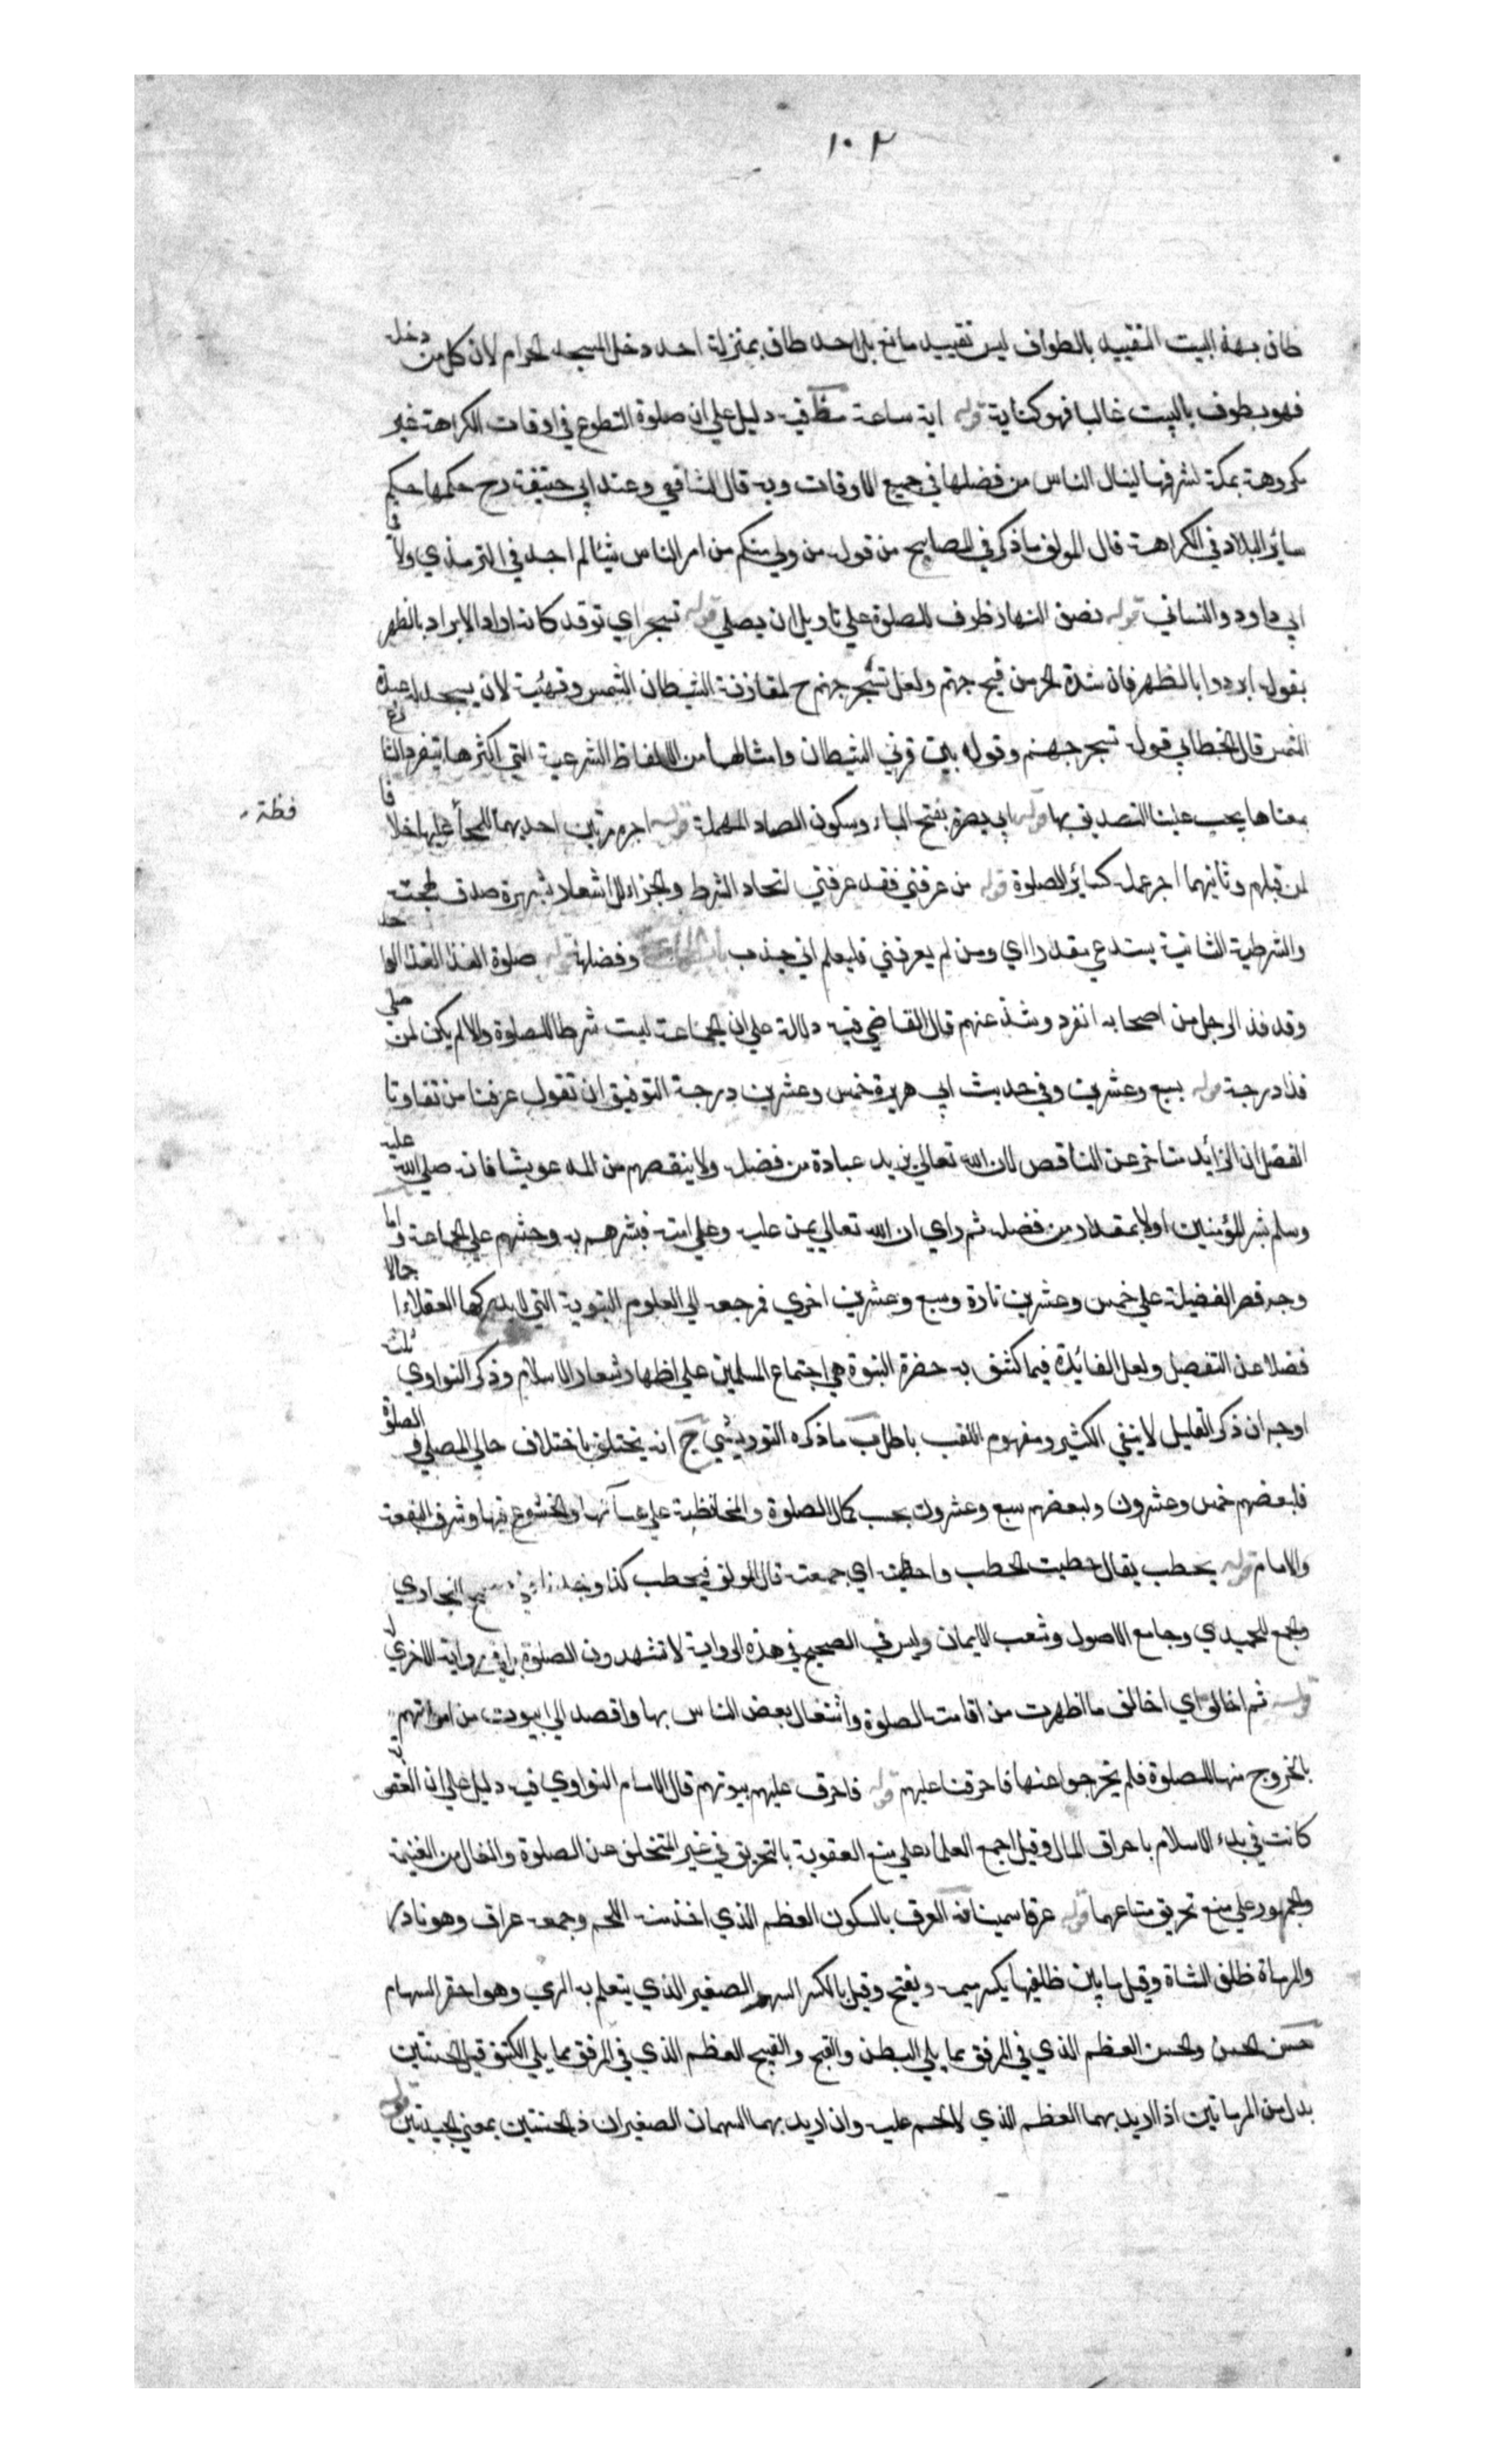 ١٠٢
طاف بهذا البيت التقييد بالطواف ليس تقييد مانع بل احد طاف بمنزلة احد دخل المسجد الحرام لان كل من دخله
فهو يطوف بالبيت غالبا فهو كناية قوله اية ساعة مظ فيه دليل علي ان صلوة التطوع في اوقات الكراهة غير
مكروهة بمكة لشرفها لينال الناس من فضلها في جميع الاوقات وبه قال الشافعي وعند ابي حنيفة رح حكمها حكم
سائر البلاد في الكراهة قال المولف ما ذكر في المصابيح من قوله من ولي منكم من امر الناس شيئا لم اجده في الترمذي ولا في
ابي داود والنسائي قوله نصف النهار ظرف للصلوة علي تاويل ان يصلي قوله تسجر اي توقد كانه اراد الابراد بالظهر
بقوله ابردوا بالظهر فان شدة الحر من فيح جهنم ولعل تسجر جهنم ح لمقارنة الشيطان الشمس وتهيئه لان يسجد له عبدة
الشمس قال الخطابي قوله تسجر جهنم وقوله بين قرني الشيطان وامثالهما من الالفاظ الشرعية التي اكثرها يتفرد الشارع
بمعناها يجب علينا التصديق بها قوله ابي بصرة بفتح الباء وسكون الصاد المهملة قوله اجره مرتين احديهما للمحافظة عليها خلافا
فظة
لمن قبلهم وثانيهما اجر عمله كسائر الصلوة قوله من عرفني فقد عرفني اتحاد الشرط والجزاء للاشعار بشهرة صدق لهجته
والشرطية الثانية يستدعي مقدرا اي ومن لم يعرفني فليعلم اني جندب باب الجماعة وفضلها قوله صلوة الفذ الفذ الواحد
وقد فذ الرجل من اصحابه انفرد وشذ عنهم قال القاضي فيه دلالة علي ان الجماعة ليست شرطا للصلوة والا لم يكن لمن صلي
فذا درجة قوله بسبع وعشرين وفي حديث ابي هريرة خمس وعشرين درجة التوفيق ان تقول عرفنا من تفاوت
الفضل ان الزائد متاخر عن الناقص لان الله تعالي يزيد عباده من فضله ولا ينقصهم من الموعود شيئا فانه صلي الله عليه
وسلم بشر المؤمنين اولا بمقدار من فضله ثم راي ان الله تعالي يمن عليه وعلي امته فبشرهم به وحثهم علي الجماعة واما
وجه قصر الفضيلة علي خمس وعشرين تارة وسبع وعشرين اخري فمرجعه الي العلوم النبوية التي لا يدركها العقلاء اجمالا
فضلا عن التفصيل ولعل الفائدة فيما كشف به حضرة النبوة هي اجتماع المسلمين علي اظهار شعار الاسلام وذكر النواوي ثلث
اوجه ان ذكر القليل لا ينفي الكثير ومفهوم اللقب باطل ب ما ذكره التوربشتي ج انه يختلف باختلاف حال المصلي في الصلوة
فلبعضهم خمس وعشرون ولبعضهم سبع وعشرون بحسب كمال الصلوة والمحافظة علي هيآتها والخشوع فيها وشرف البقعة
والامام قوله يحطب يقال حطبت الحطب واحتطبت اي جمعت قال المولف فيحطب كذا وجدناه في صحيح البخاري
والجمع للحميدي وجامع الاصول وشعب الايمان وليس في الصحيح في هذه الرواية لا تشهدون الصلوة بل في رواية الاخري
قوله ثم اخالف اي اخالف ما اظهرت من اقامت الصلوة واشتغال بعض الناس بها واقصد الي بيوت من امرتهم
بالخروج منها للصلوة فلم يخرجوا عنها فاحرقها عليهم قوله فاحرق عليهم بيوتهم قال الامام النواوي فيه دليل علي ان العقوبة
كانت في بدء الاسلام باحراق المال وقيل اجمع العلماء علي منع العقوبة بالتحريق في غير المتخلف عن الصلوة والغال من الغنيمة
والجمهور علي منع تحريق متاعهما قوله عرقا سمينا فه العرق بالسكون العظم الذي اخذ منه اللحم وجمعه عراق وهو نادر
والمرماة ظلف الشاة وقيل ما بين ظلفيها يكسر ميمه ويفتح وقيل بالكسر السهم الصغير الذي يتعلم به الرمي وهو احقر السهام
حسن الحسن والحسن العظم الذي في المرفق مما يلي البطن والقبح والقبيح العظم الذي في المرفق مما يلي الكتف قيل الحسنتين
بدل من المرماتين اذا اريد بهما العظم الذي لا لحم عليه وان اريد بهما السهمان الصغيران فالحسنتين بمعني الجيدتين قوله